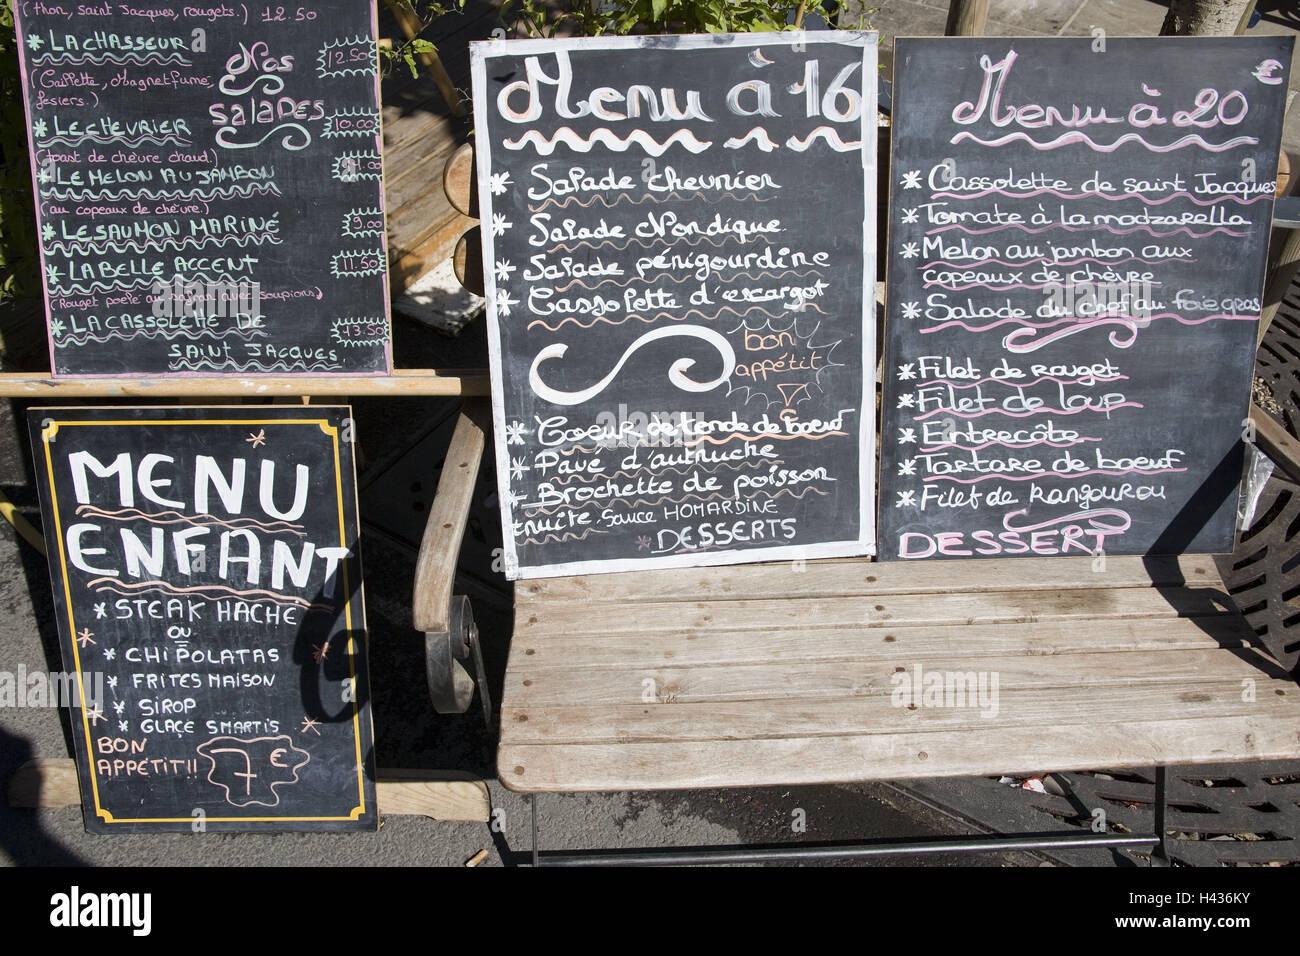 (thon, Saint Jacques, rougets.) 12.50
* LA CHASSEUR
12.50
Nos
SALADES
fesiers.)
* LE CHEVRIER
10.00
(toast de chèvre chaud.)
* LE MELON AU JAMBON
(au copeaux de chèvre.)
* LE SAUMON MARINÉ
9.00
* LA BELLE ACCENT
11.50
(Rouget poele au safran avec soupions)
* LA CASSOLETTE DE
13.50
SAINT JACQUES.
MENU
ENFANT
* STEAK HACHE
OU
* CHIPOLATAS
* FRITES MAISON
* SIROP
* GLAÇE SMARTIS
BON
APPÉTIT!!
7 €
Menu à 16
* Salade chevrier
* Salade Nordique
* Salade périgourdine
* Cassolette d'escargot
bon
appétit
* Coeur de tende de boeuf
* Pavé d'autruche
* Brochette de poisson
truite, sauce HOMARDINE
* DESSERTS
€
Menu à 20
* Cassolette de saint Jacques
* Tomate à la modzarella
* Melon au jambon aux
copeaux de chèvre
* Salade du chef au foie gras
* Filet de rouget
* Filet de loup
* Entrecôte
* Tartare de boeuf
* Filet de Kangourou
DESSERT
alamy
Image ID: H436KY
www.alamy.com